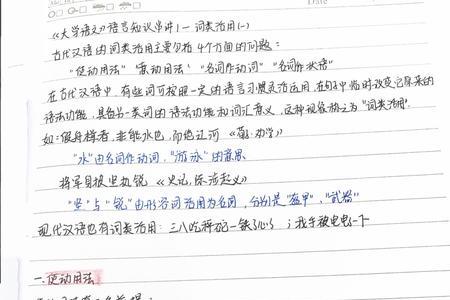 Date
《大学语文》语言知识串讲1—词类活用(一)
古代汉语的词类活用主要包括4个方面的问题：
"使动用法""意动用法""名词作动词""名词作状语"
在古代汉语中有些词可按照一定的语言习惯灵活运用，在句子中临时改变它原来的
语法功能，具备另一类词的语法功能和词汇意义，这种现象称之为"词类活用"
如：假舟楫者，非能水也，而绝江河《荀·劝学》
"水"由名词作动词，"游泳"的意思
将军身披坚执锐《史记·陈涉起义》
"坚"与"锐"由形容词活用为名词，分别是"盔甲"，"武器"
现代汉语也有词类活用：三八吃秤砣一铁了心了；我手被电电一下
一.使动用法